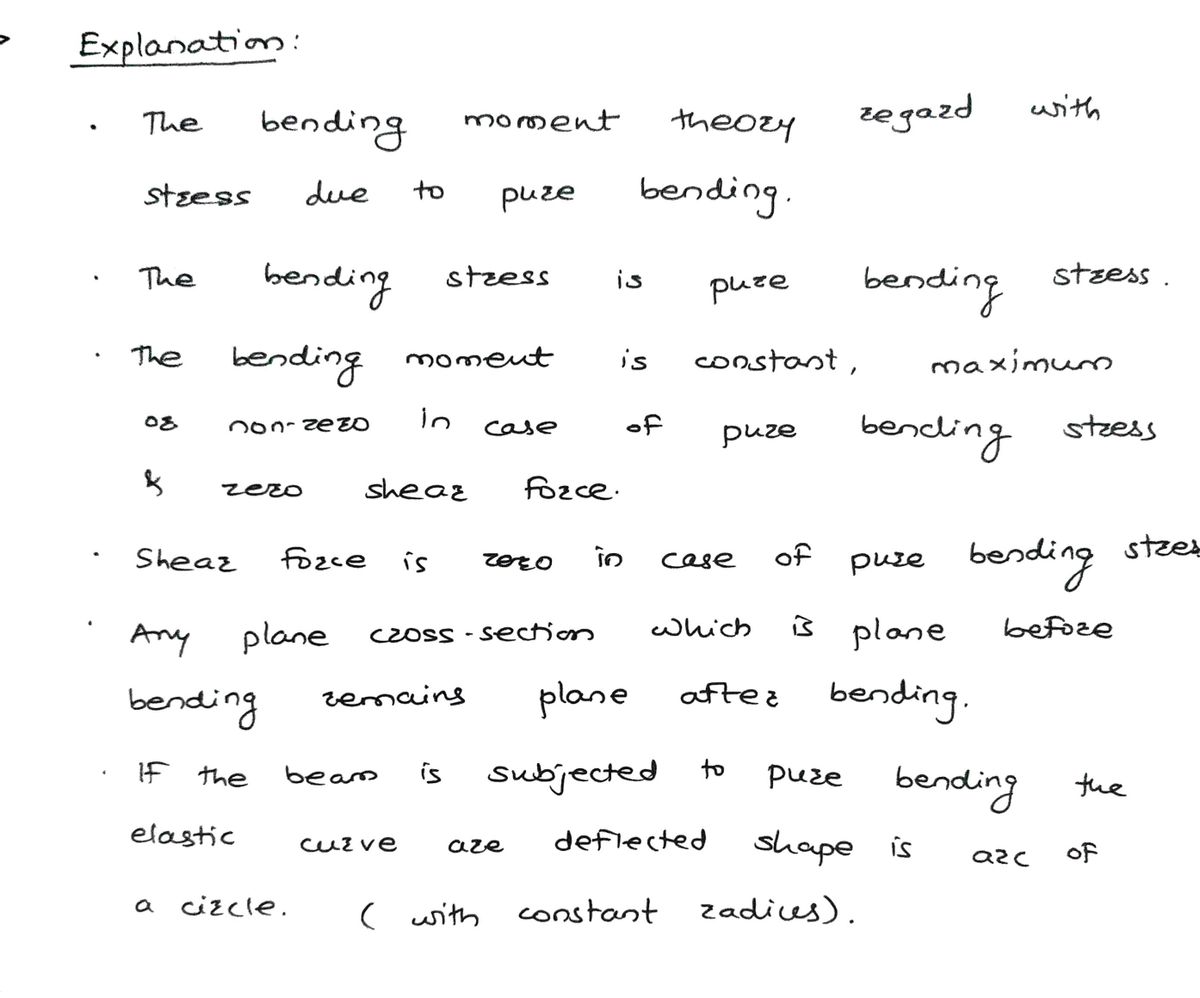 Explanation:
· The bending moment theory regard with
stress due to pure bending.
· The bending stress is pure bending stress.
· The bending moment is constant, maximum
or non-zero in case of pure bending stress
& zero shear force.
· Shear force is zero in case of pure bending stres
· Any plane cross-section which is plane before
bending remains plane after bending.
· If the beam is subjected to pure bending the
elastic curve are deflected shape is arc of
a circle. (with constant radius).